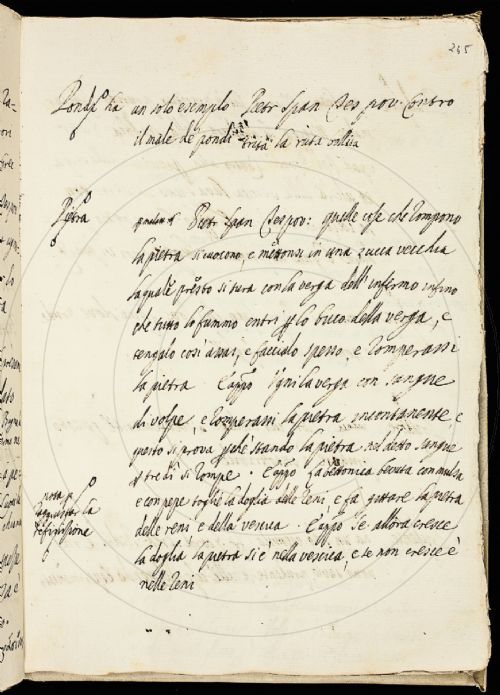 265
Pondi ha un solo esempio Pietr Span Tes pov. Contro
il male de pondi trita la ruta ortica
Pietra Pietr Span Tespov: quelle cose che rompono
la pietra si cuocono, e mettonsi in una zucca vecchia
la quale presto si tura con la verga dell' infermo infino
che tutto lo fumo entri p lo buco della verga, e
tengalo così assai, e facciolo spesso, e romperassi
la pietra E app.o Ugni la verga con sangue
di volpe, e romperassi la pietra incontanente, e
questo si prova che stando la pietra nel detto sangue
tre dì si rompe. E app.o La bettonica bevuta con mulsa
e con pepe toglie la doglia delle reni, e fa gittare la pietra
delle reni e della vescica. E app.o Se allora cresce
la doglia la pietra si è nella vescica, e se non cresce è
nelle reni
nota
la